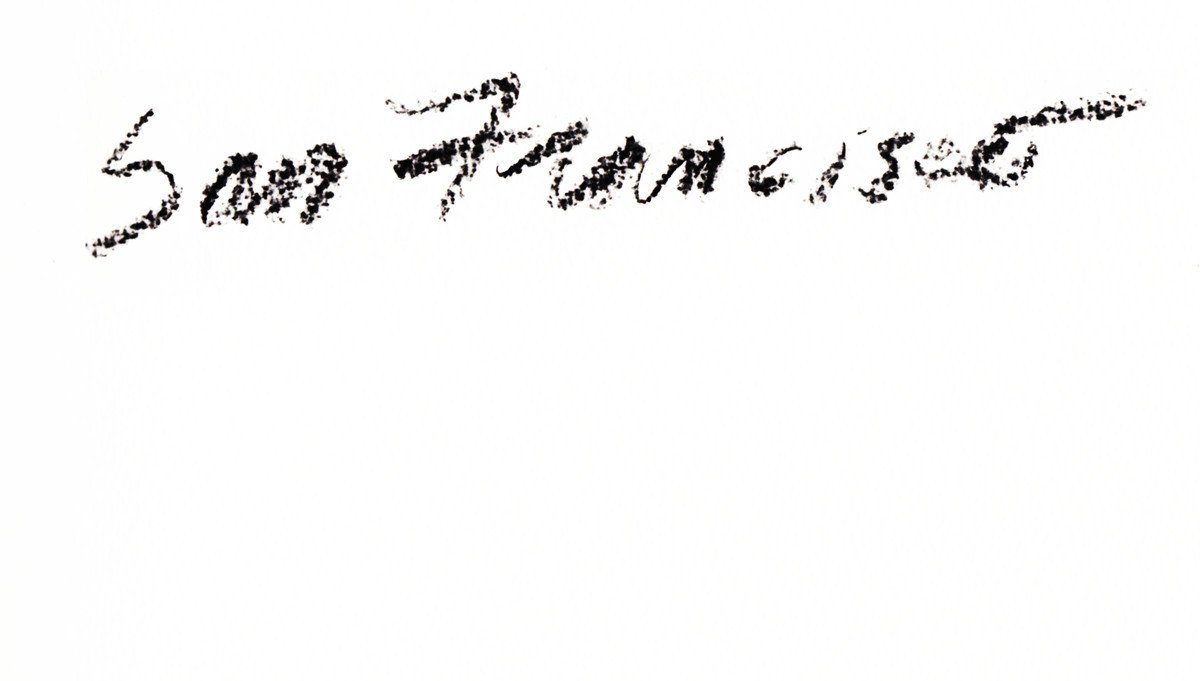 San Francisco